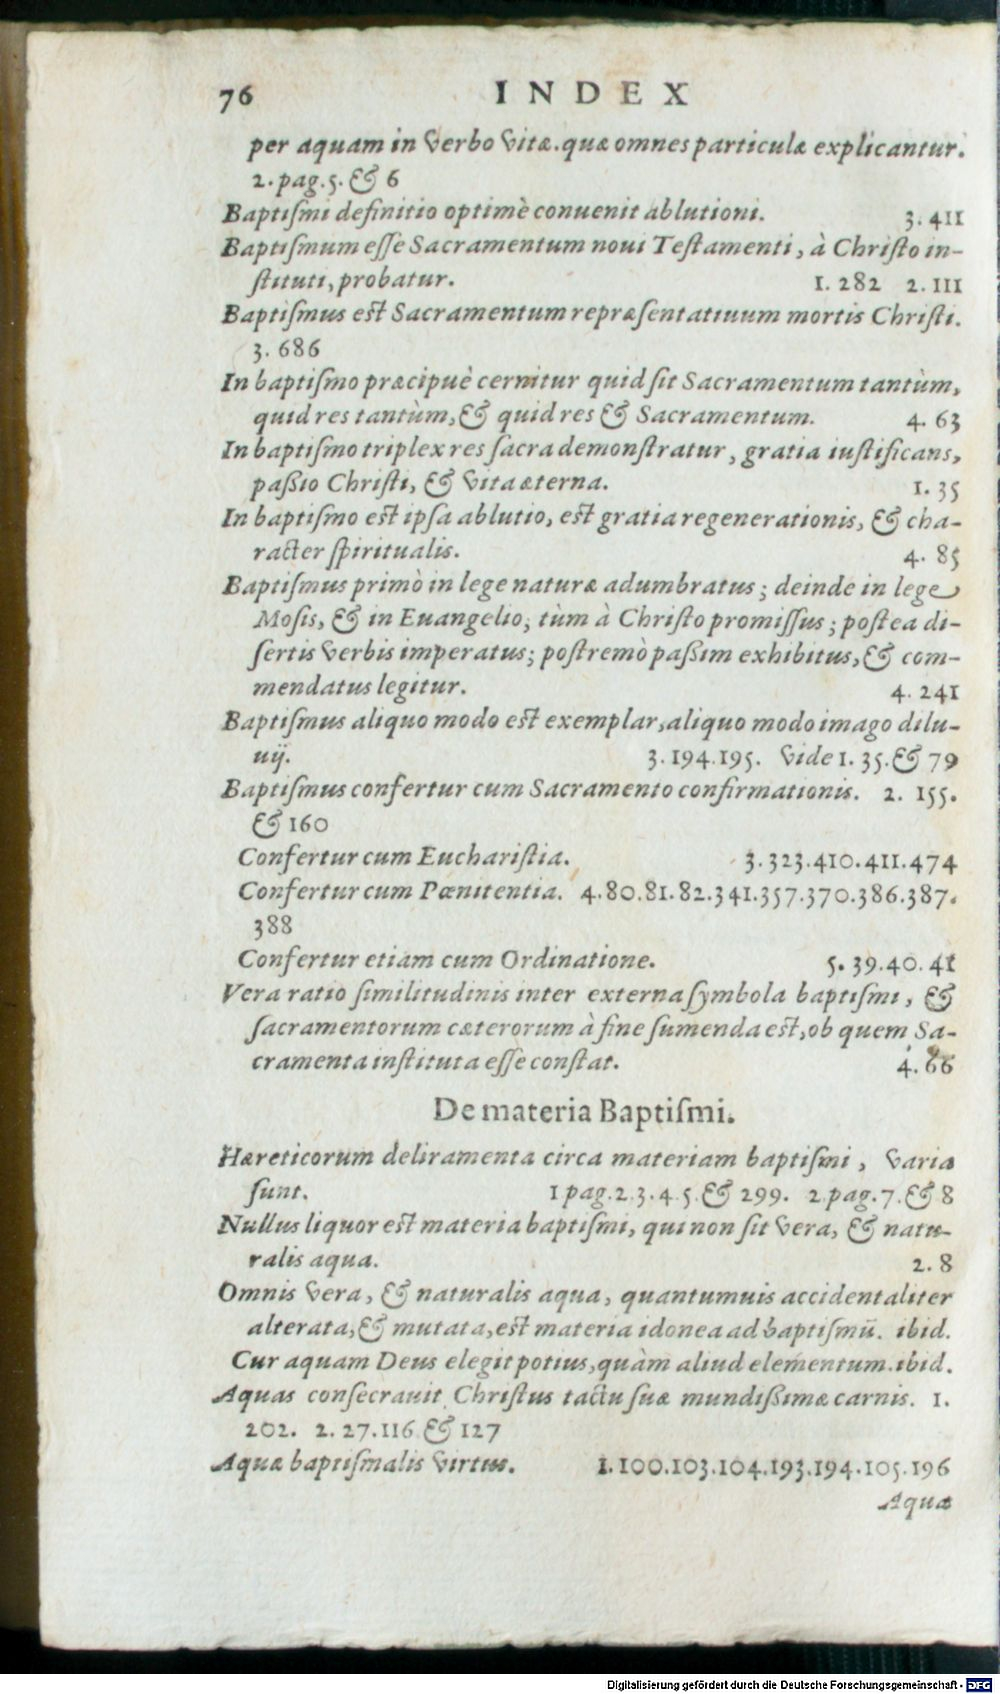 76 INDEX
per aquam in verbo vitæ. quæ omnes particulæ explicantur.
2. pag. 5. & 6
Baptiſmi definitio optimè conuenit ablutioni. 3. 411
Baptiſmum eſſe Sacramentum noui Teſtamenti, à Chriſto in-
ſtituti, probatur. 1. 282 2. 111
Baptiſmus eſt Sacramentum repræſentatiuum mortis Chriſti.
3. 686
In baptiſmo præcipuè cernitur quid ſit Sacramentum tantùm,
quid res tantùm, & quid res & Sacramentum. 4. 63
In baptiſmo triplex res ſacra demonſtratur, gratia iuſtificans,
paßio Chriſti, & vita æterna. 1. 35
In baptiſmo eſt ipſa ablutio, eſt gratia regenerationis, & cha-
racter ſpiritualis. 4. 85
Baptiſmus primò in lege naturæ adumbratus; deinde in lege
Moſis, & in Euangelio; tùm à Chriſto promiſſus; poſtea di-
ſertis verbis imperatus; poſtremò paßim exhibitus, & com-
mendatus legitur. 4. 241
Baptiſmus aliquo modo eſt exemplar, aliquo modo imago dilu-
uij. 3. 194. 195. vide 1. 35. & 79
Baptiſmus confertur cum Sacramento confirmationis. 2. 155.
& 160
Confertur cum Euchariſtia. 3. 323. 410. 411. 474
Confertur cum Pœnitentia. 4. 80. 81. 82. 341. 357. 370. 386. 387.
388
Confertur etiam cum Ordinatione. 5. 39. 40. 41
Vera ratio ſimilitudinis inter externa ſymbola baptiſmi, &
ſacramentorum cæterorum à fine ſumenda eſt, ob quem Sa-
cramenta inſtituta eſſe conſtat. 4. 66
De materia Baptiſmi.
Hæreticorum deliramenta circa materiam baptiſmi, varia
ſunt. 1 pag. 2. 3. 4. 5. & 299. 2. pag. 7. & 8
Nullus liquor eſt materia baptiſmi, qui non ſit vera, & natu-
ralis aqua. 2. 8
Omnis vera, & naturalis aqua, quantumuis accidentaliter
alterata, & mutata, eſt materia idonea ad baptiſmū. ibid.
Cur aquam Deus elegit potius, quàm aliud elementum. ibid.
Aquas conſecrauit Chriſtus tactu ſuæ mundißimæ carnis. 1.
202. 2. 27. 116 & 127
Aquæ baptiſmalis virtus. 1. 100. 103. 104. 193. 194. 105. 196
Aquæ
Digitalisierung gefördert durch die Deutsche Forschungsgemeinschaft - DFG